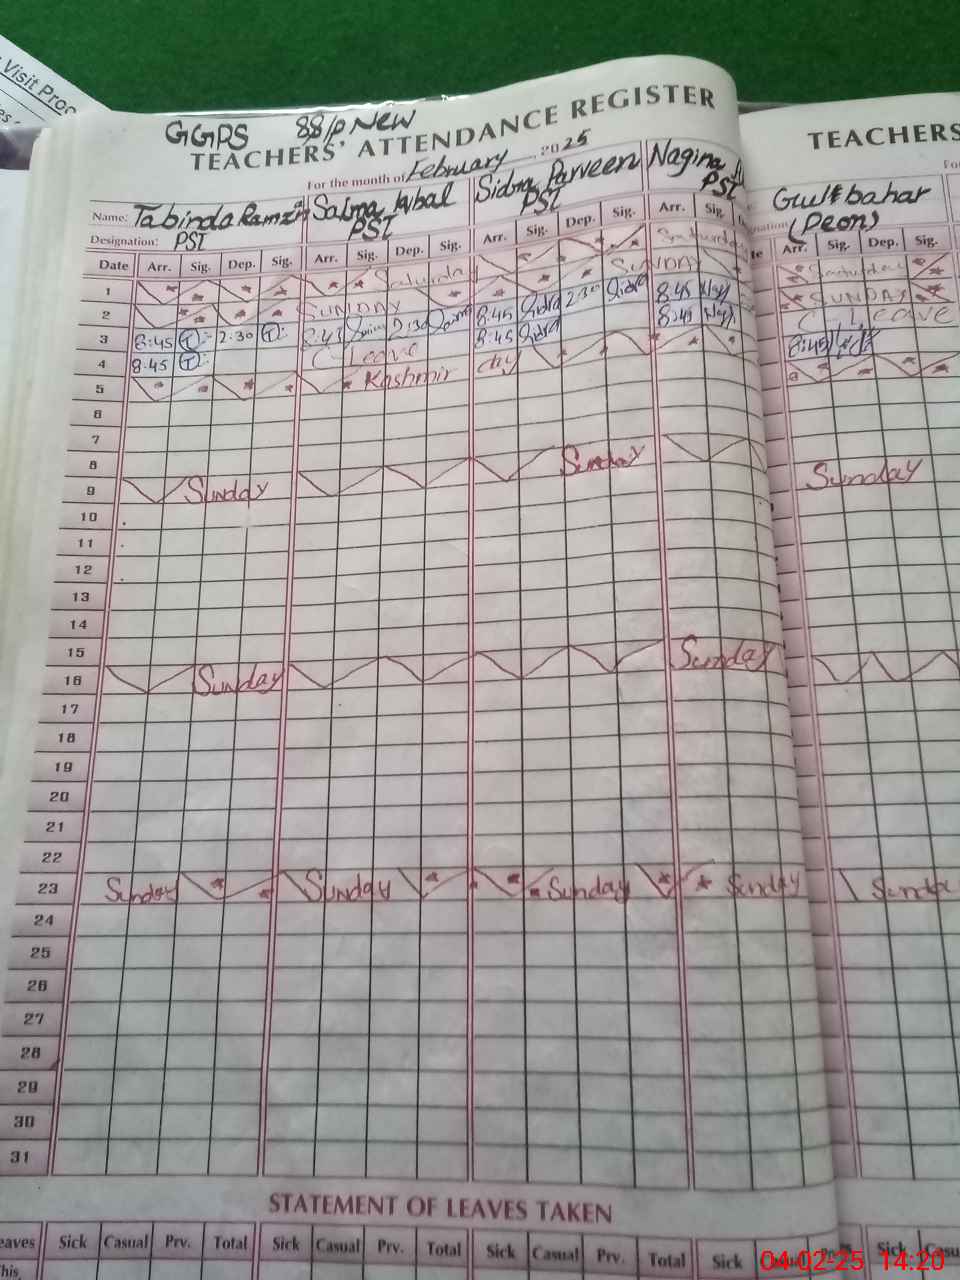 Visit Proc
es
GGPS 88/P New
TEACHERS' ATTENDANCE REGISTER
For the month of February 2025
Name: Tabinda Ramzan Saima Iqbal Sidra Parveen Nagina
Designation: PST PST PST PST
Date Arr. Sig. Dep. Sig. Arr. Sig. Dep. Sig. Arr. Sig. Dep. Sig. Arr. Sig.
1 Saturday Saturday
2 SUNDAY SUNDAY
3 8:45 T 2:30 T 8:45 2:30 8:45 Sidra 2:30 Sidra 8:45
4 8:45 T C Leave 8:45 Sidra 8:45
5 Kashmir day
6
7
8
9 Sunday Sunday
10
11
12
13
14
15
16 Sunday Sunday
17
18
19
20
21
22
23 Sunday Sunday Sunday Sunday
24
25
26
27
28
29
30
31
STATEMENT OF LEAVES TAKEN
eaves Sick Casual Prv. Total Sick Casual Prv. Total Sick Casual Prv. Total Sick
This
TEACHERS
Gul e bahar
(Peon)
Arr. Sig. Dep. Sig.
Saturday
SUNDAY
C Leave
8:45
Sunday
Sunday
Sick Casu
04-02-25 14:20